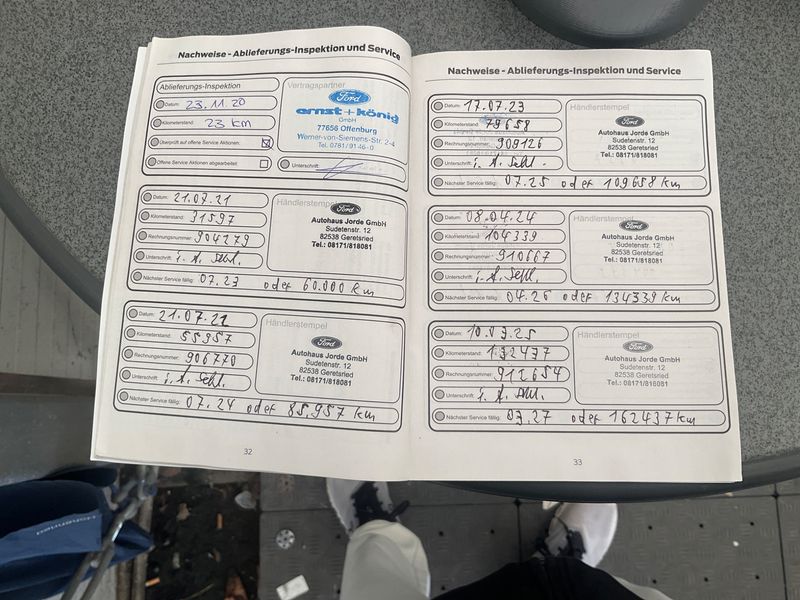 Nachweise - Ablieferungs-Inspektion und Service
Ablieferungs-Inspektion
Datum: 23.11.20
Kilometerstand: 23 km
Überprüft auf offene Service Aktionen:
Offene Service Aktionen abgearbeitet:
Vertragspartner
Ford
ernst+könig
GmbH
77656 Offenburg
Werner-von-Siemens-Str. 2-4
Tel. 0781/9146-0
Unterschrift:
Datum: 21.07.21
Kilometerstand: 31597
Rechnungsnummer: 904279
Unterschrift: i. A.
Händlerstempel
Ford
Autohaus Jorde GmbH
Sudetenstr. 12
82538 Geretsried
Tel.: 08171/818081
Nächster Service fällig: 07.23 oder 60.000 km
Datum: 21.07.22
Kilometerstand: 55957
Rechnungsnummer: 906770
Unterschrift: i. A.
Händlerstempel
Ford
Autohaus Jorde GmbH
Sudetenstr. 12
82538 Geretsried
Tel.: 08171/818081
Nächster Service fällig: 07.24 oder 85.957 km
32
Nachweise - Ablieferungs-Inspektion und Service
Datum: 17.07.23
Kilometerstand: 79658
Rechnungsnummer: 909126
Unterschrift: i. A.
Händlerstempel
Ford
Autohaus Jorde GmbH
Sudetenstr. 12
82538 Geretsried
Tel.: 08171/818081
Nächster Service fällig: 07.25 oder 109658 km
Datum: 08.04.24
Kilometerstand: 104339
Rechnungsnummer: 910667
Unterschrift: i. A.
Händlerstempel
Ford
Autohaus Jorde GmbH
Sudetenstr. 12
82538 Geretsried
Tel.: 08171/818081
Nächster Service fällig: 04.26 oder 134339 km
Datum: 10.03.25
Kilometerstand: 132437
Rechnungsnummer: 912654
Unterschrift: i. A.
Händlerstempel
Ford
Autohaus Jorde GmbH
Sudetenstr. 12
82538 Geretsried
Tel.: 08171/818081
Nächster Service fällig: 03.27 oder 162437 km
33